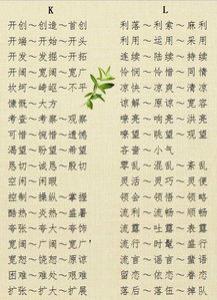 K
开创～创始～首创
开端～开始～开头
开发～发掘～开拓
开阔～宽阔～广阔
坎坷～崎岖～不平
慷慨～大方
考查～考察～观察
可惜～惋惜～遗憾
渴望～盼望～希望
恳切～诚恳～殷切
空闲～闲暇
控制～操纵～掌握
酷热～炎热～盛暑
夸张～夸大～夸饰
宽阔～广阔～宽广
宽恕～饶恕～原谅
困难～难处～艰难
扩展～扩大～扩张
L
利落～利索～麻利
利用～运用～采用
连续～陆续～持续
怜悯～怜惜～同情
凉快～凉爽～清凉
谅解～原谅～宽容
嘹亮～响亮～洪亮
瞭望～眺望～观望
吝啬～小气
零乱～混乱～紊乱
灵活～灵巧～灵便
领会～领悟～领略
流利～流畅～顺畅
流露～吐露～表露
流行～时髦～盛行
流言～谣言～蜚语
留恋～依恋～眷恋
落后～落伍～掉队